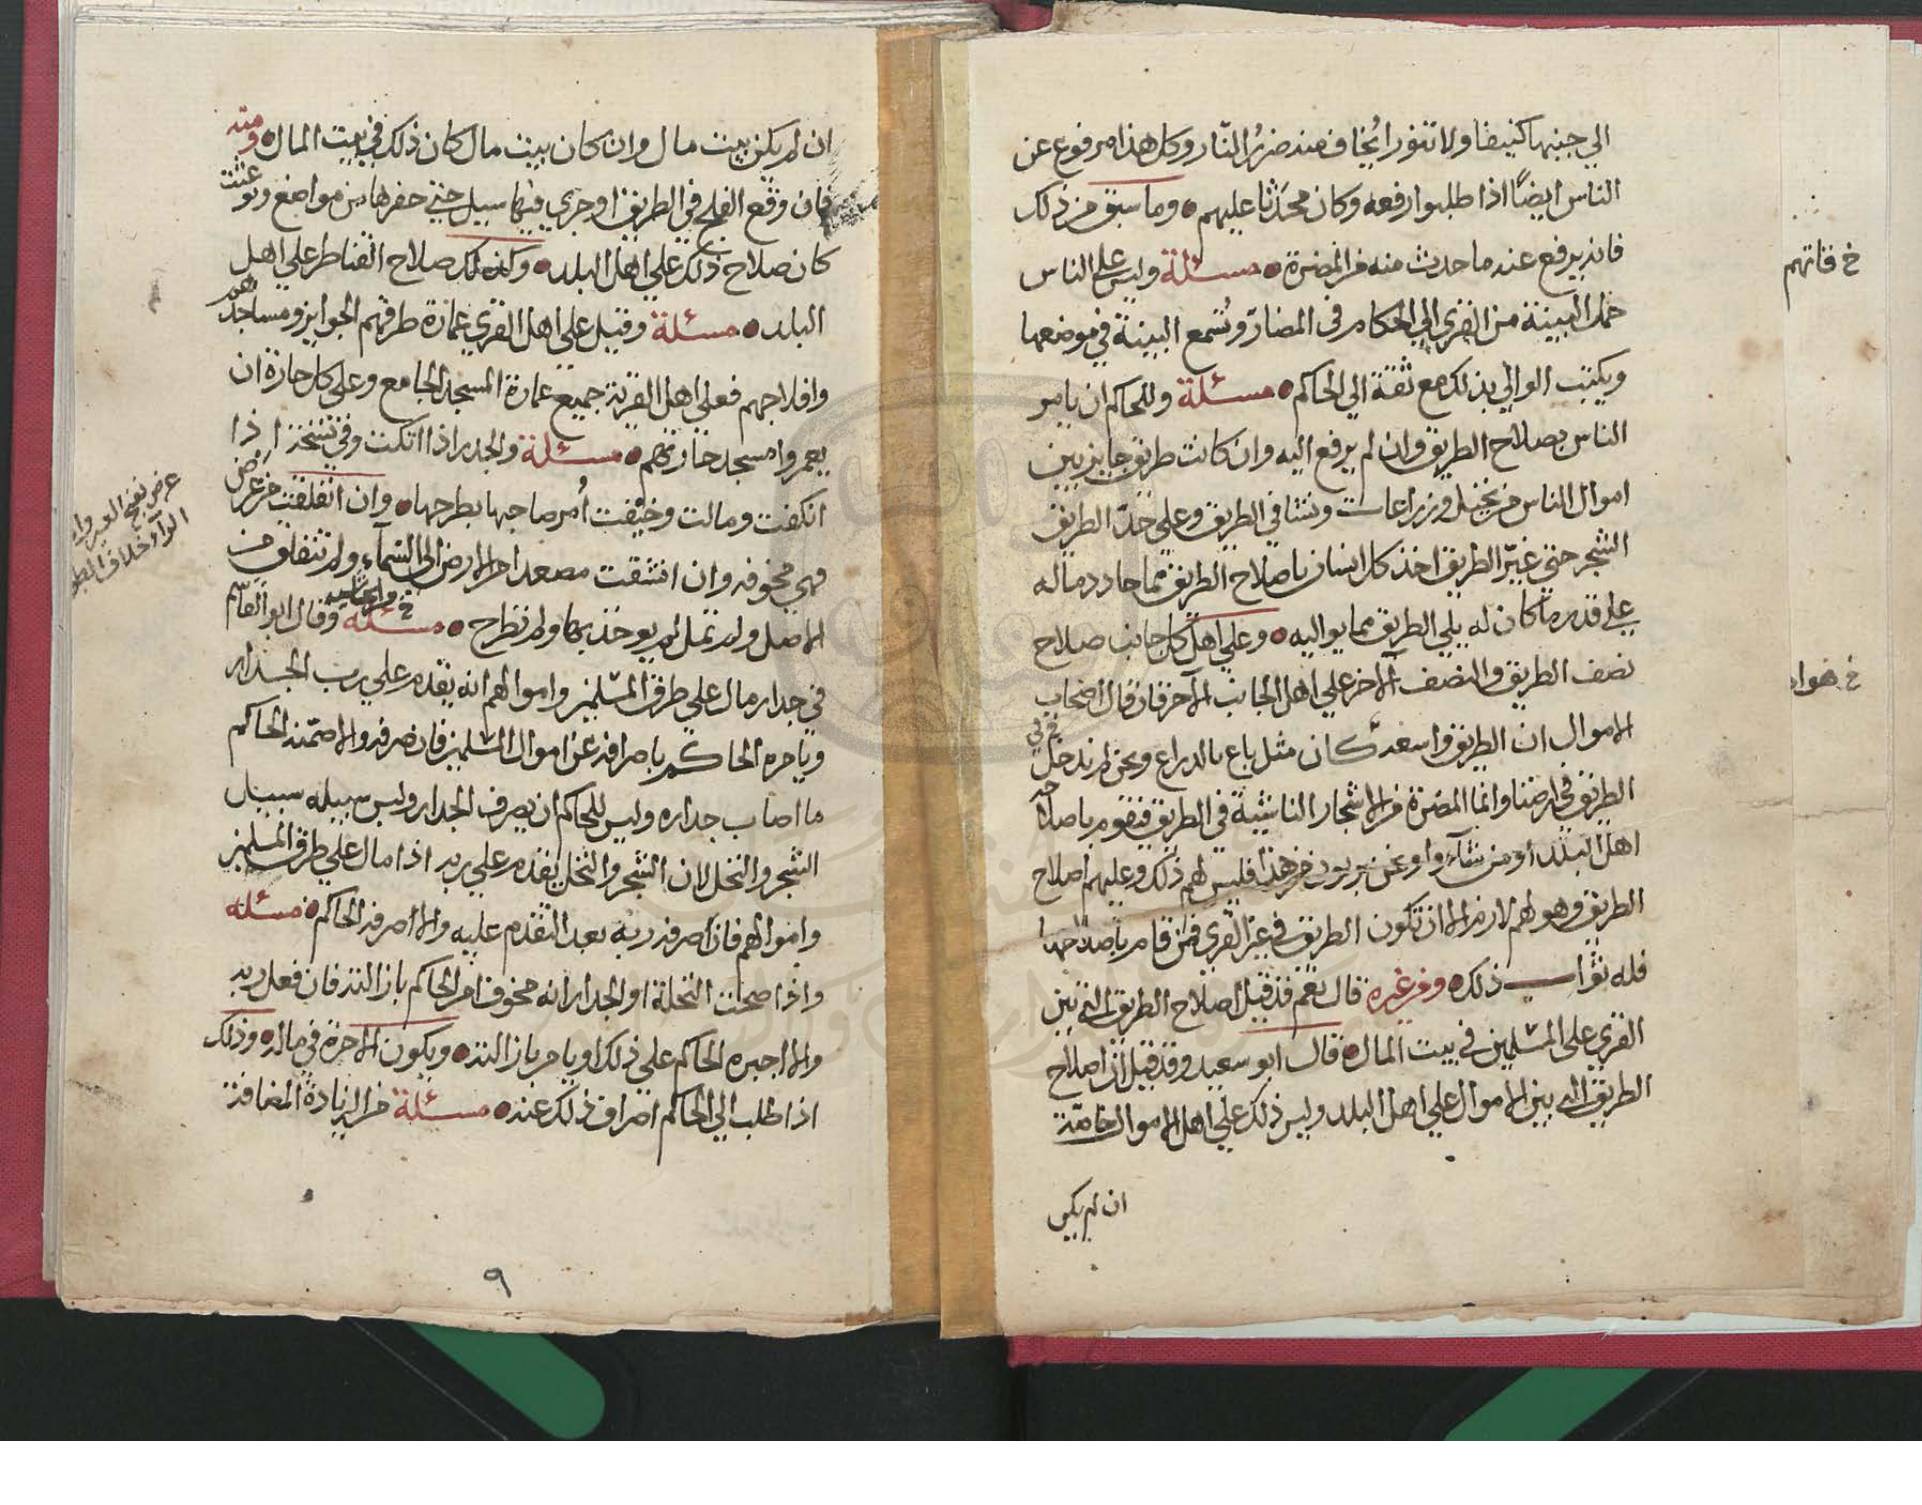 الي جنبها كنيفا ولا تنورا يُخاف منه ضررُ النّار وكل هذا مرفوع عن
الناس ايضًا اذا طلبوا رفعه وكان محدَثا عليهم • وما سبق من ذلك
فانه يرفع عنه ما حدث منه من المضرة • مسئلة وليس على الناس
خ فانهم
حمل البينة من القرى الي الحكام في المضارّ وتُسمع البينة في موضعها
ويكتب الوالي بذلك مع ثقة الي الحاكم • مسئلة وللحاكم ان يامر
الناس بصلاح الطريق وان لم يرفع اليه وان كانت طريق جايز بين
اموال الناس من نخيل وزراعات ونشا في الطريق وعلي حدّ الطريق
الشجر حتي غيّر الطريق اخذ كل انسان باصلاح الطريق مما حاددماله
علي قدر ما كان له يلي الطريق مما يواليه • وعلي اهل كل جانب صلاح
نصف الطريق والنصف الآخر علي اهل الجانب الآخر فان قال اصحاب
الاموال ان الطريق واسعة كان مثل باع بالذراع ونحن لم ندخل
الطريق في ارضنا وانما المضرة من الاشجار الناشية في الطريق فيقوم باصلاحه
اهل البلد او من شآءوا ونحن بريون من هذا فليس لهم ذلك وعليهم اصلاح
الطريق وهو لهم لازم الا ان تكون الطريق في غير القري فمن قام باصلاحها
فله ثواب ذلك • ومن غيره قال نعم قد قيل اصلاح الطريق التي بين
القري علي المسلمين في بيت المال • قال ابو سعيد وقد قيل ان اصلاح
الطريق التي بين الاموال علي اهل البلد وليس ذلك علي اهل الاموال خاصّة
ان لم يكن
ان لم يكن بيت مال وان كان بيت مال كان ذلك في بيت المال • ومنه
فان وقع الفلج في الطريق او جري فيها سيل حتي حفرها من مواضع وتوعثت
كان صلاح ذلك علي اهل البلد • وكذلك صلاح القناطر علي اهل
البلد • مسئلة وقيل علي اهل القري عمارة طرقهم الجوايز ومساجدهم
وافلاجهم فعلي اهل القرية جميع عمارة المسجد الجامع وعلي كل حارة ان
يعمروا مسجد حارتهم • مسئلة والجدر اذا اتكت وفي نسخة اذا
انكفت ومالت وخيفت اُمر صاحبها بطرحها • وان انفلقت من عرض
فهي مخوفه وان انشقت مصعدا من الارض الي السّمآء ولم تنفلق من
الاصل ولم تمل لم يوخذ بها ولم تطرح • مسئلة وقال ابو القاسم
في جدار مال علي طرق المسلمين واموالهم انه يقدم علي رب الجدار
ويامره الحاكم باصرافه عن اموال المسلمين فان صرفه والا ضمنه الحاكم
ما اصاب جداره وليس للحاكم ان يصرف الجدار وليس سبيله سبيل
الشجر والنخل لان الشجر والنخل يقدم علي ربه اذا مال علي طرق المسلمين
واموالهم فان صرفه ربه بعد التقدم عليه والا صرفه الحاكم • مسئله
واذا صحت النخلة او الجدار انه مخوف امر الحاكم بازالته فان فعل ربه
والا اجبره الحاكم علي ذلك او يامر بازالته • ويكون الاجرة في ماله • وذلك
اذا طلب الي الحاكم اصراف ذلك عنه • مسئلة من الزيادة المضافة
٩